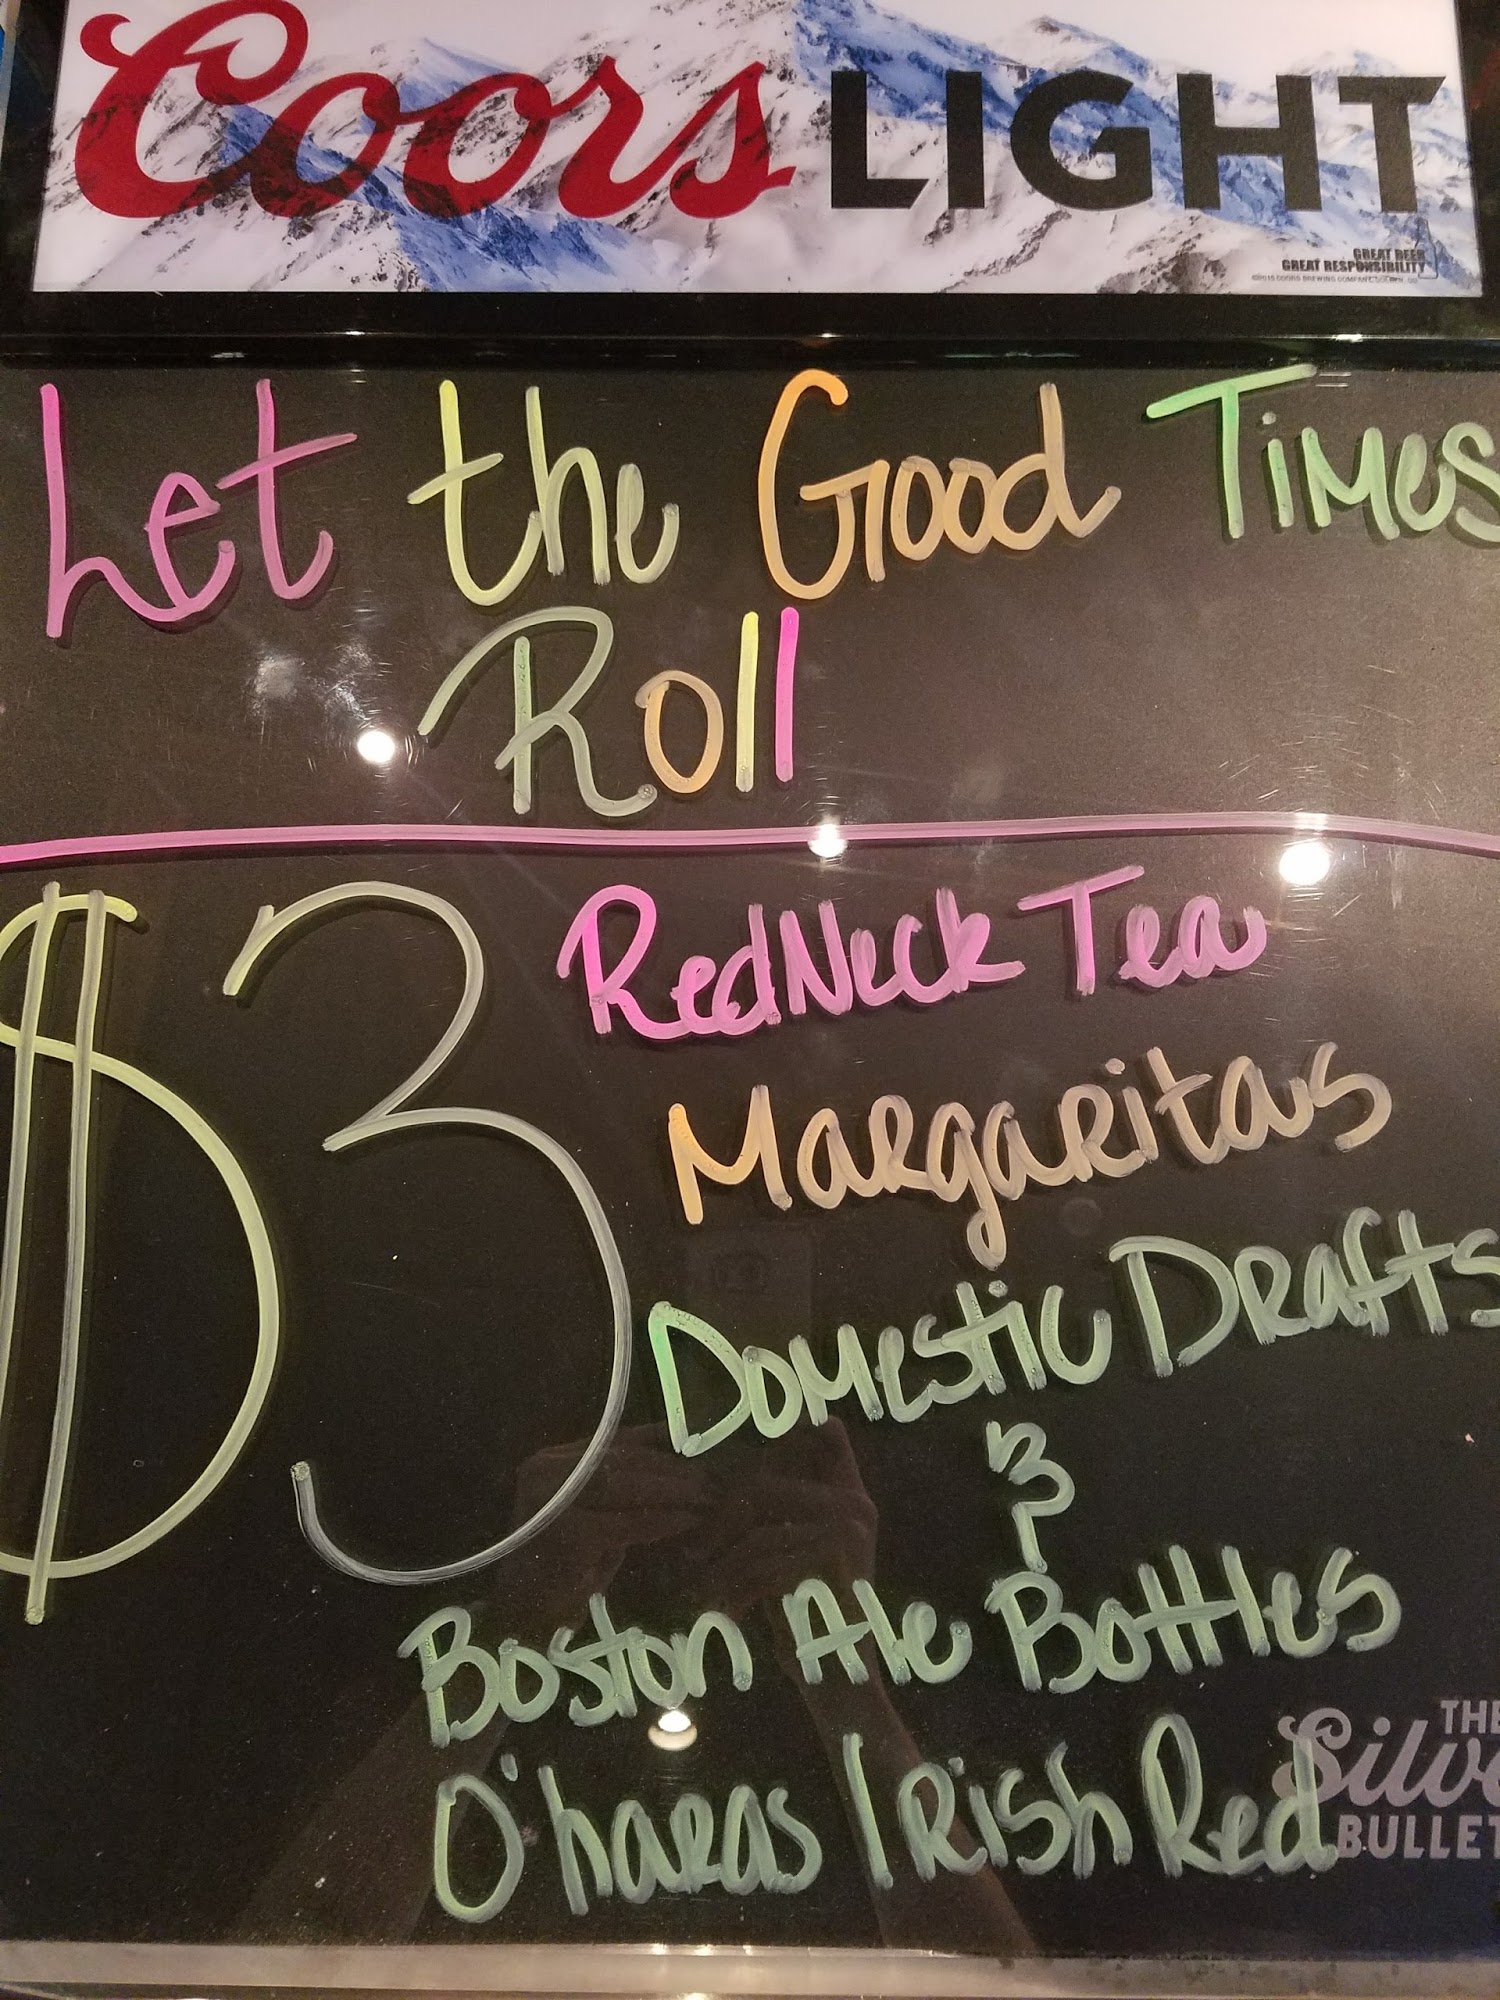 Coors LIGHT
GREAT BEER
GREAT RESPONSIBILITY
Let the Good Times
Roll
$3
RedNeck Tea
Margaritas
Domestic Drafts
&
Boston Ale Bottles
O'haras Irish Red
THE
Silve
BULLET